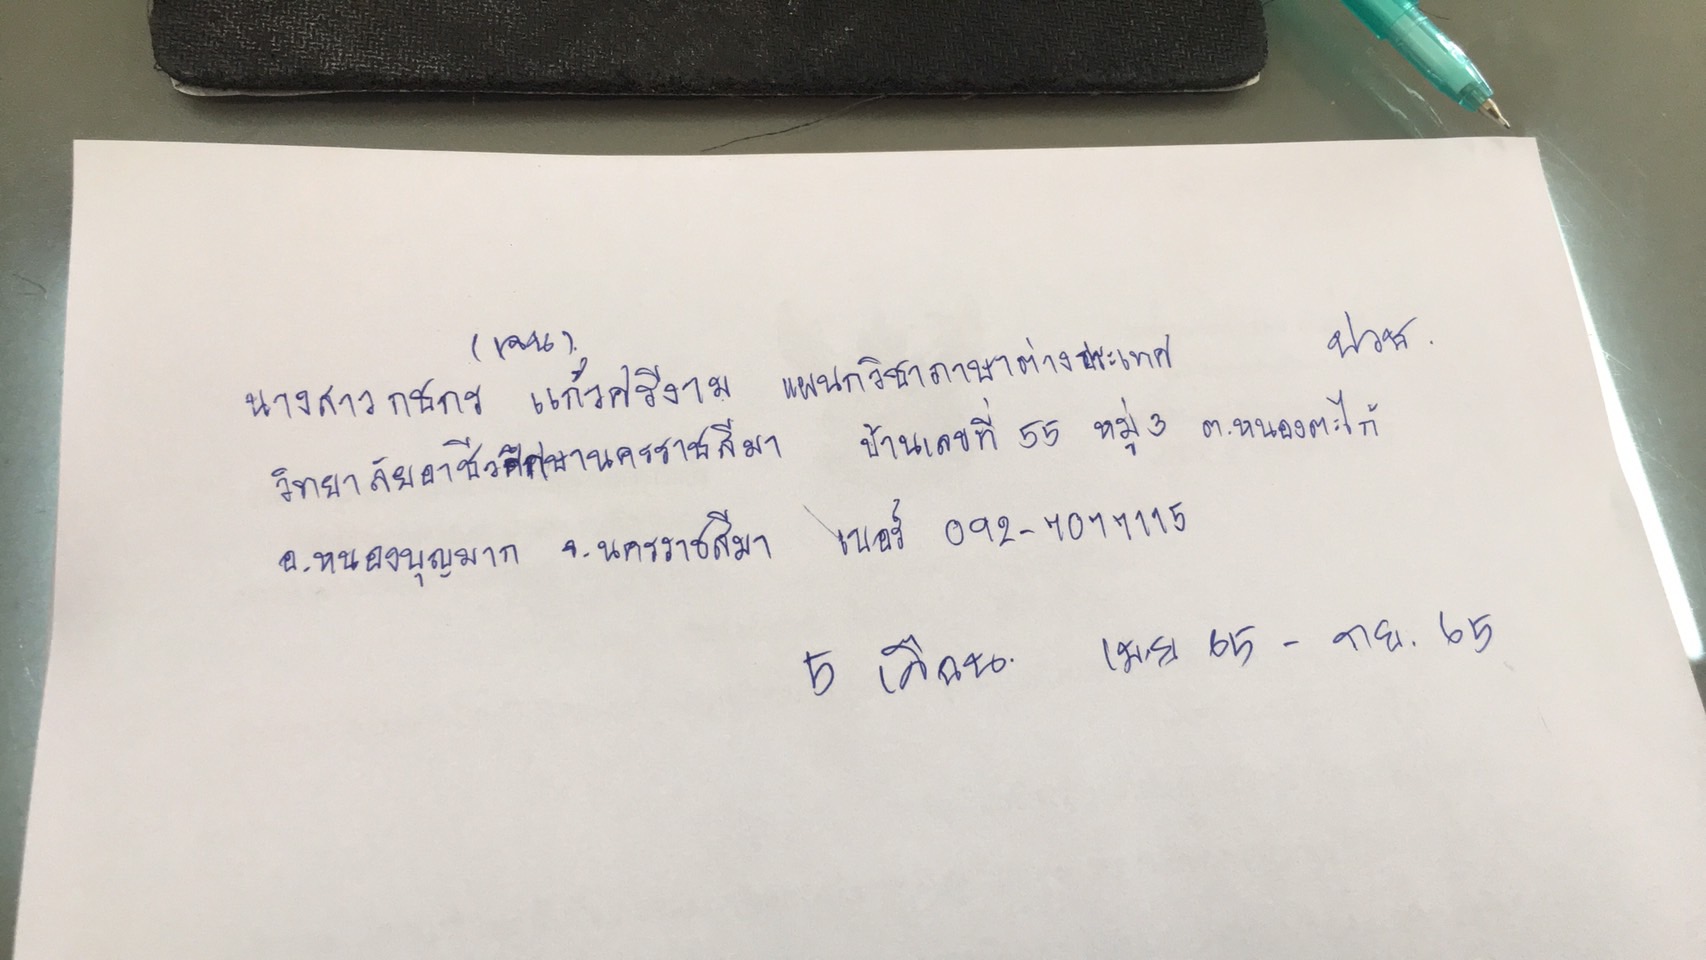 (เจน)
นางสาวกชกร แก้วศรีงาม แผนกวิชาภาษาต่างประเทศ ปวช.
วิทยาลัยอาชีวศึกษานครราชสีมา บ้านเลขที่ 55 หมู่ 3 ต.หนองตะไก้
อ.หนองบุญมาก จ.นครราชสีมา เบอร์ 092-7077115
5 เดือน. เม.ย 65 - ก.ย. 65